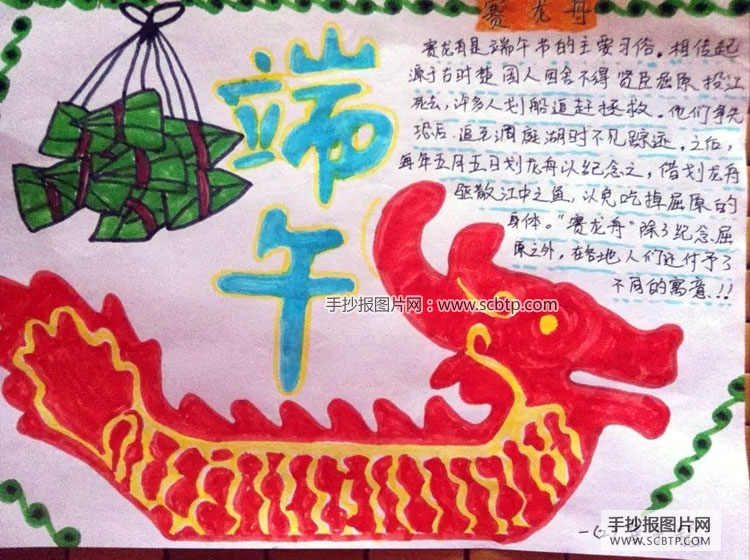 赛龙舟
端午
赛龙舟是端午节的主要习俗。相传起
源于古时楚国人因舍不得贤臣屈原投江
死去,许多人划船追赶拯救。他们争先
恐后,追至洞庭湖时不见踪迹。之后,
每年五月五日划龙舟以纪念之,借划龙舟
驱散江中之鱼,以免吃掉屈原的
身体。"赛龙舟"除了纪念屈
原之外,在各地人们还付予了
不同的寓意!!
手抄报图片网:www.scbtp.com
手抄报图片网
WWW.SCBTP.COM